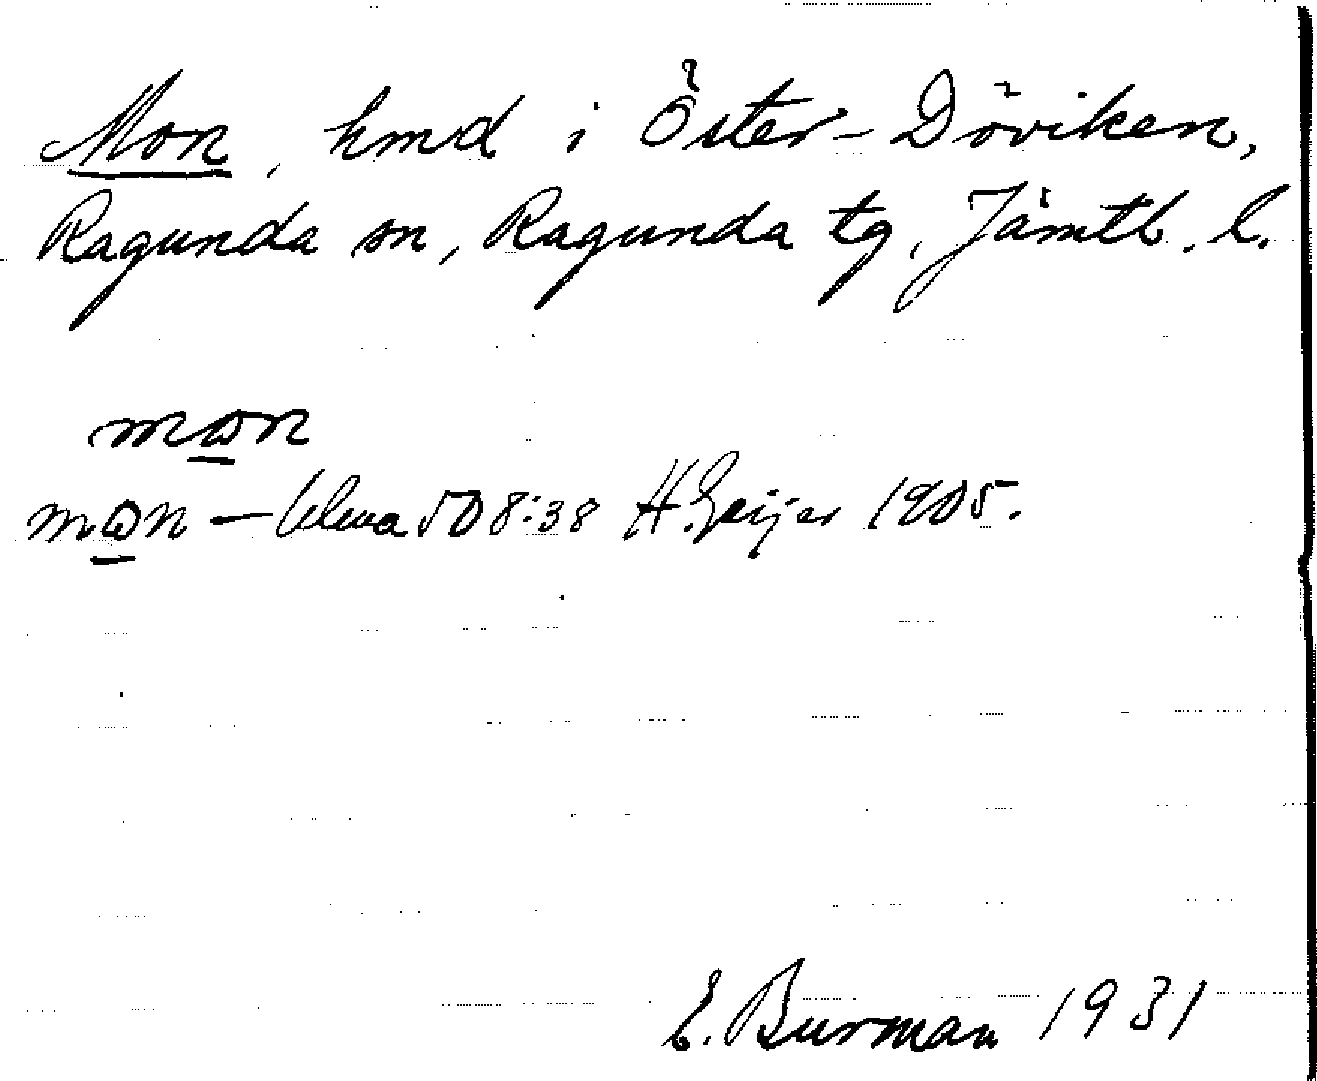 Mon, hmd i Öster-Döviken,
Ragunda sn, Ragunda tg, Jämtl. l.
mɷn
mɷn — 508:38 H. Geijer 1905.
E. Burman 1931